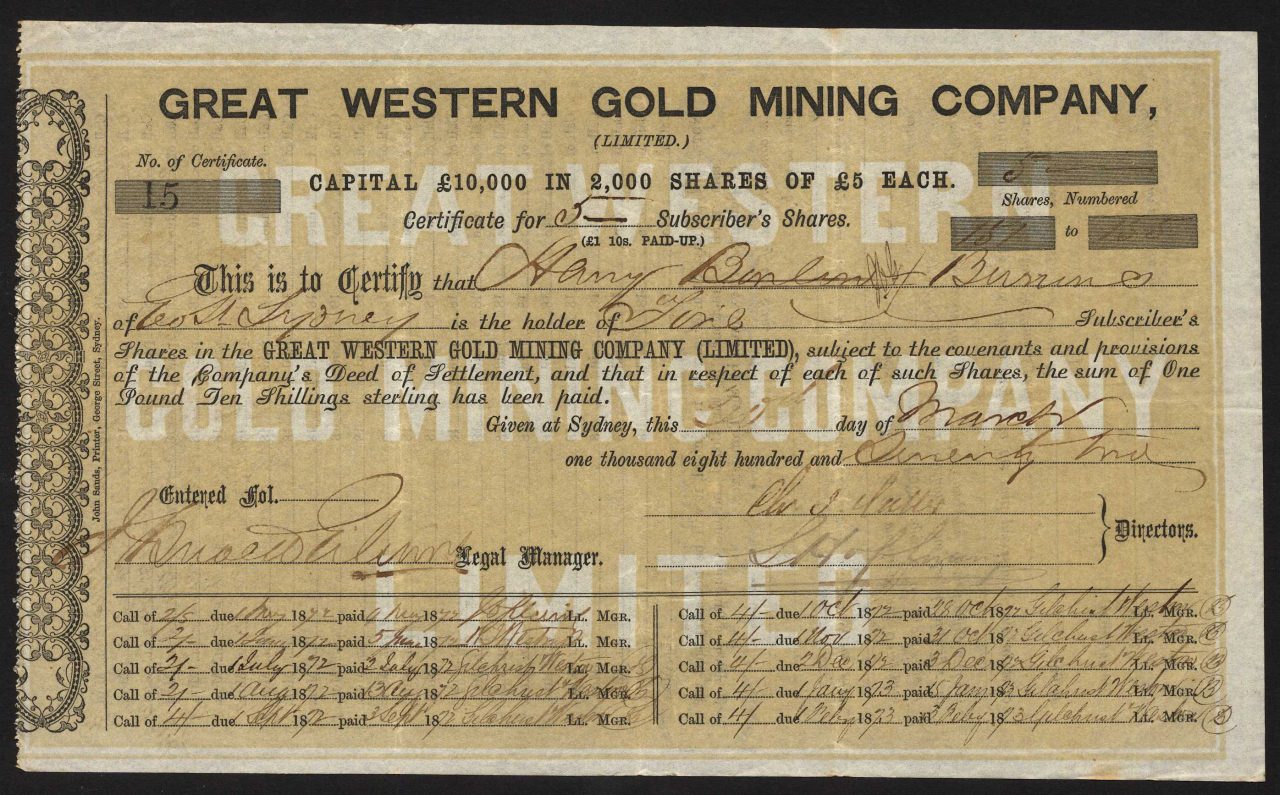 GREAT WESTERN GOLD MINING COMPANY,
(LIMITED.)
No. of Certificate.
15
CAPITAL £10,000 IN 2,000 SHARES OF £5 EACH.
5
Shares, Numbered
Certificate for 5 Subscriber's Shares.
to
(£1 10s. PAID-UP.)
This is to Certify that Harry Burrows
of East Sydney is the holder of Five Subscriber's
Shares in the GREAT WESTERN GOLD MINING COMPANY (LIMITED), subject to the covenants and provisions
of the Company's Deed of Settlement, and that in respect of each of such Shares, the sum of One
Pound Ten Shillings sterling has been paid.
Given at Sydney, this day of March
one thousand eight hundred and Seventy two
Entered Fol.
Directors.
Legal Manager.
Call of due 1 May 1872 paid May 1872 Ll. MGR.
Call of 2/- due 1872 paid 5 1872 Ll. MGR.
Call of 2/- due 1 July 1872 paid 2 July 1872 Gilchrist Weston Ll. MGR.
Call of 2/- due Aug 1872 paid 1872 Gilchrist Weston Ll. MGR.
Call of 4/- due Sept 1872 paid Sept 1872 Gilchrist Weston Ll. MGR.
Call of 4/- due 1 Oct 1872 paid 28 Oct 1872 Gilchrist Weston Ll. MGR.
Call of 4/- due Nov 1872 paid 31 Oct 1872 Gilchrist Weston Ll. MGR.
Call of 4/- due Dec 1872 paid 3 Dec 1872 Gilchrist Weston Ll. MGR.
Call of 4/- due 1 Jany 1873 paid Jany 1873 Gilchrist Weston Ll. MGR.
Call of 4/- due Feby 1873 paid Feby 1873 Gilchrist Weston Ll. MGR.
John Sands, Printer, George Street, Sydney.
GREAT WESTERN
GOLD MINING COMPANY
LIMITED